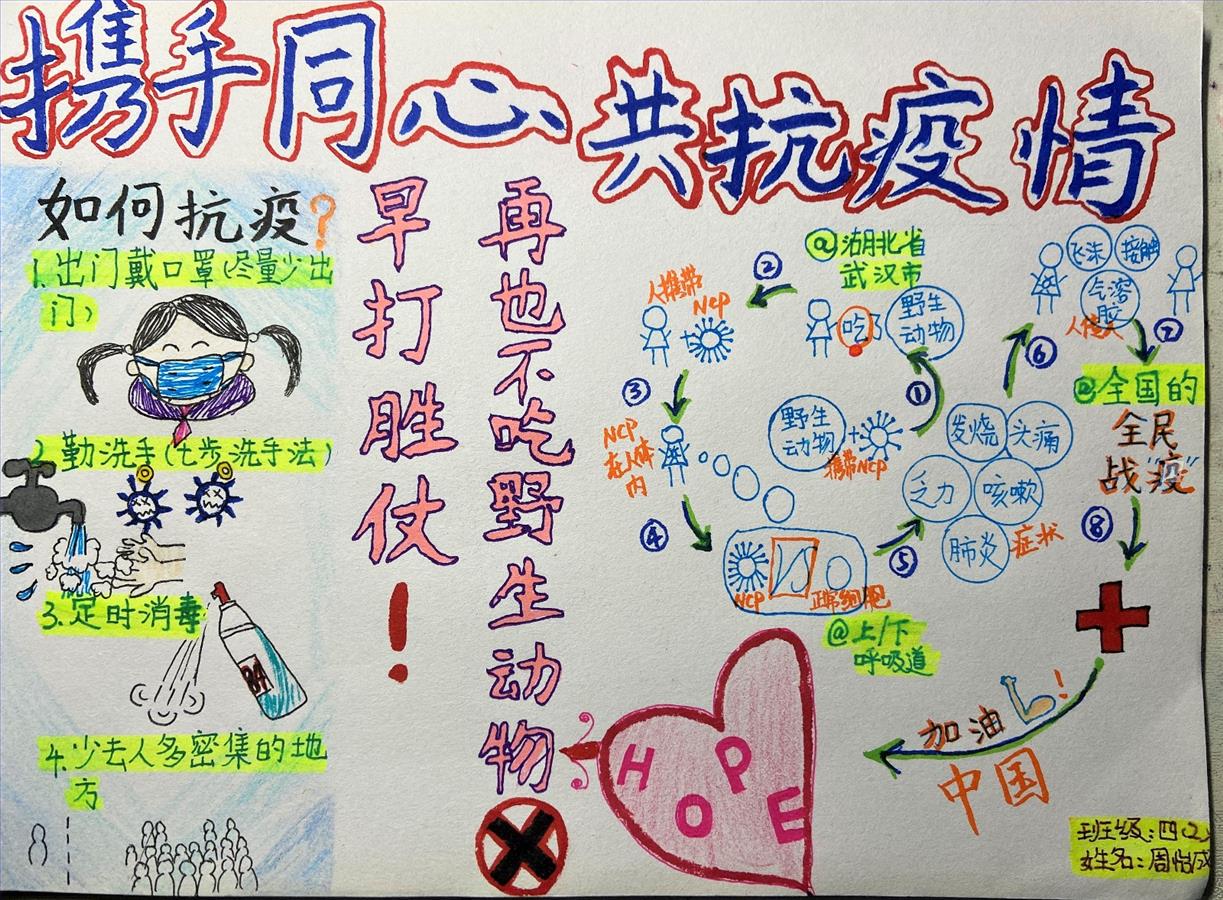 携手同心 共抗疫情
如何抗疫?
1.出门戴口罩(尽量少出
门)
2.勤洗手(七步洗手法)
3.定时消毒
84
4.少去人多密集的地
方
早打胜仗!
再也不吃野生动物
HOPE
野生
动物
+
携带NCP
①
@湖北省
武汉市
吃了
野生
动物
②
人携带
NCP
+
③
NCP
在人体
内
④
NCP
正常细胞
@上/下
呼吸道
⑤
发烧
头痛
乏力
咳嗽
肺炎
症状
⑥
飞沫
接触
气溶
胶
人传人
⑦
@全国的
全民
战"疫"
⑧
加油!
中国
班级:四(2)
姓名:周